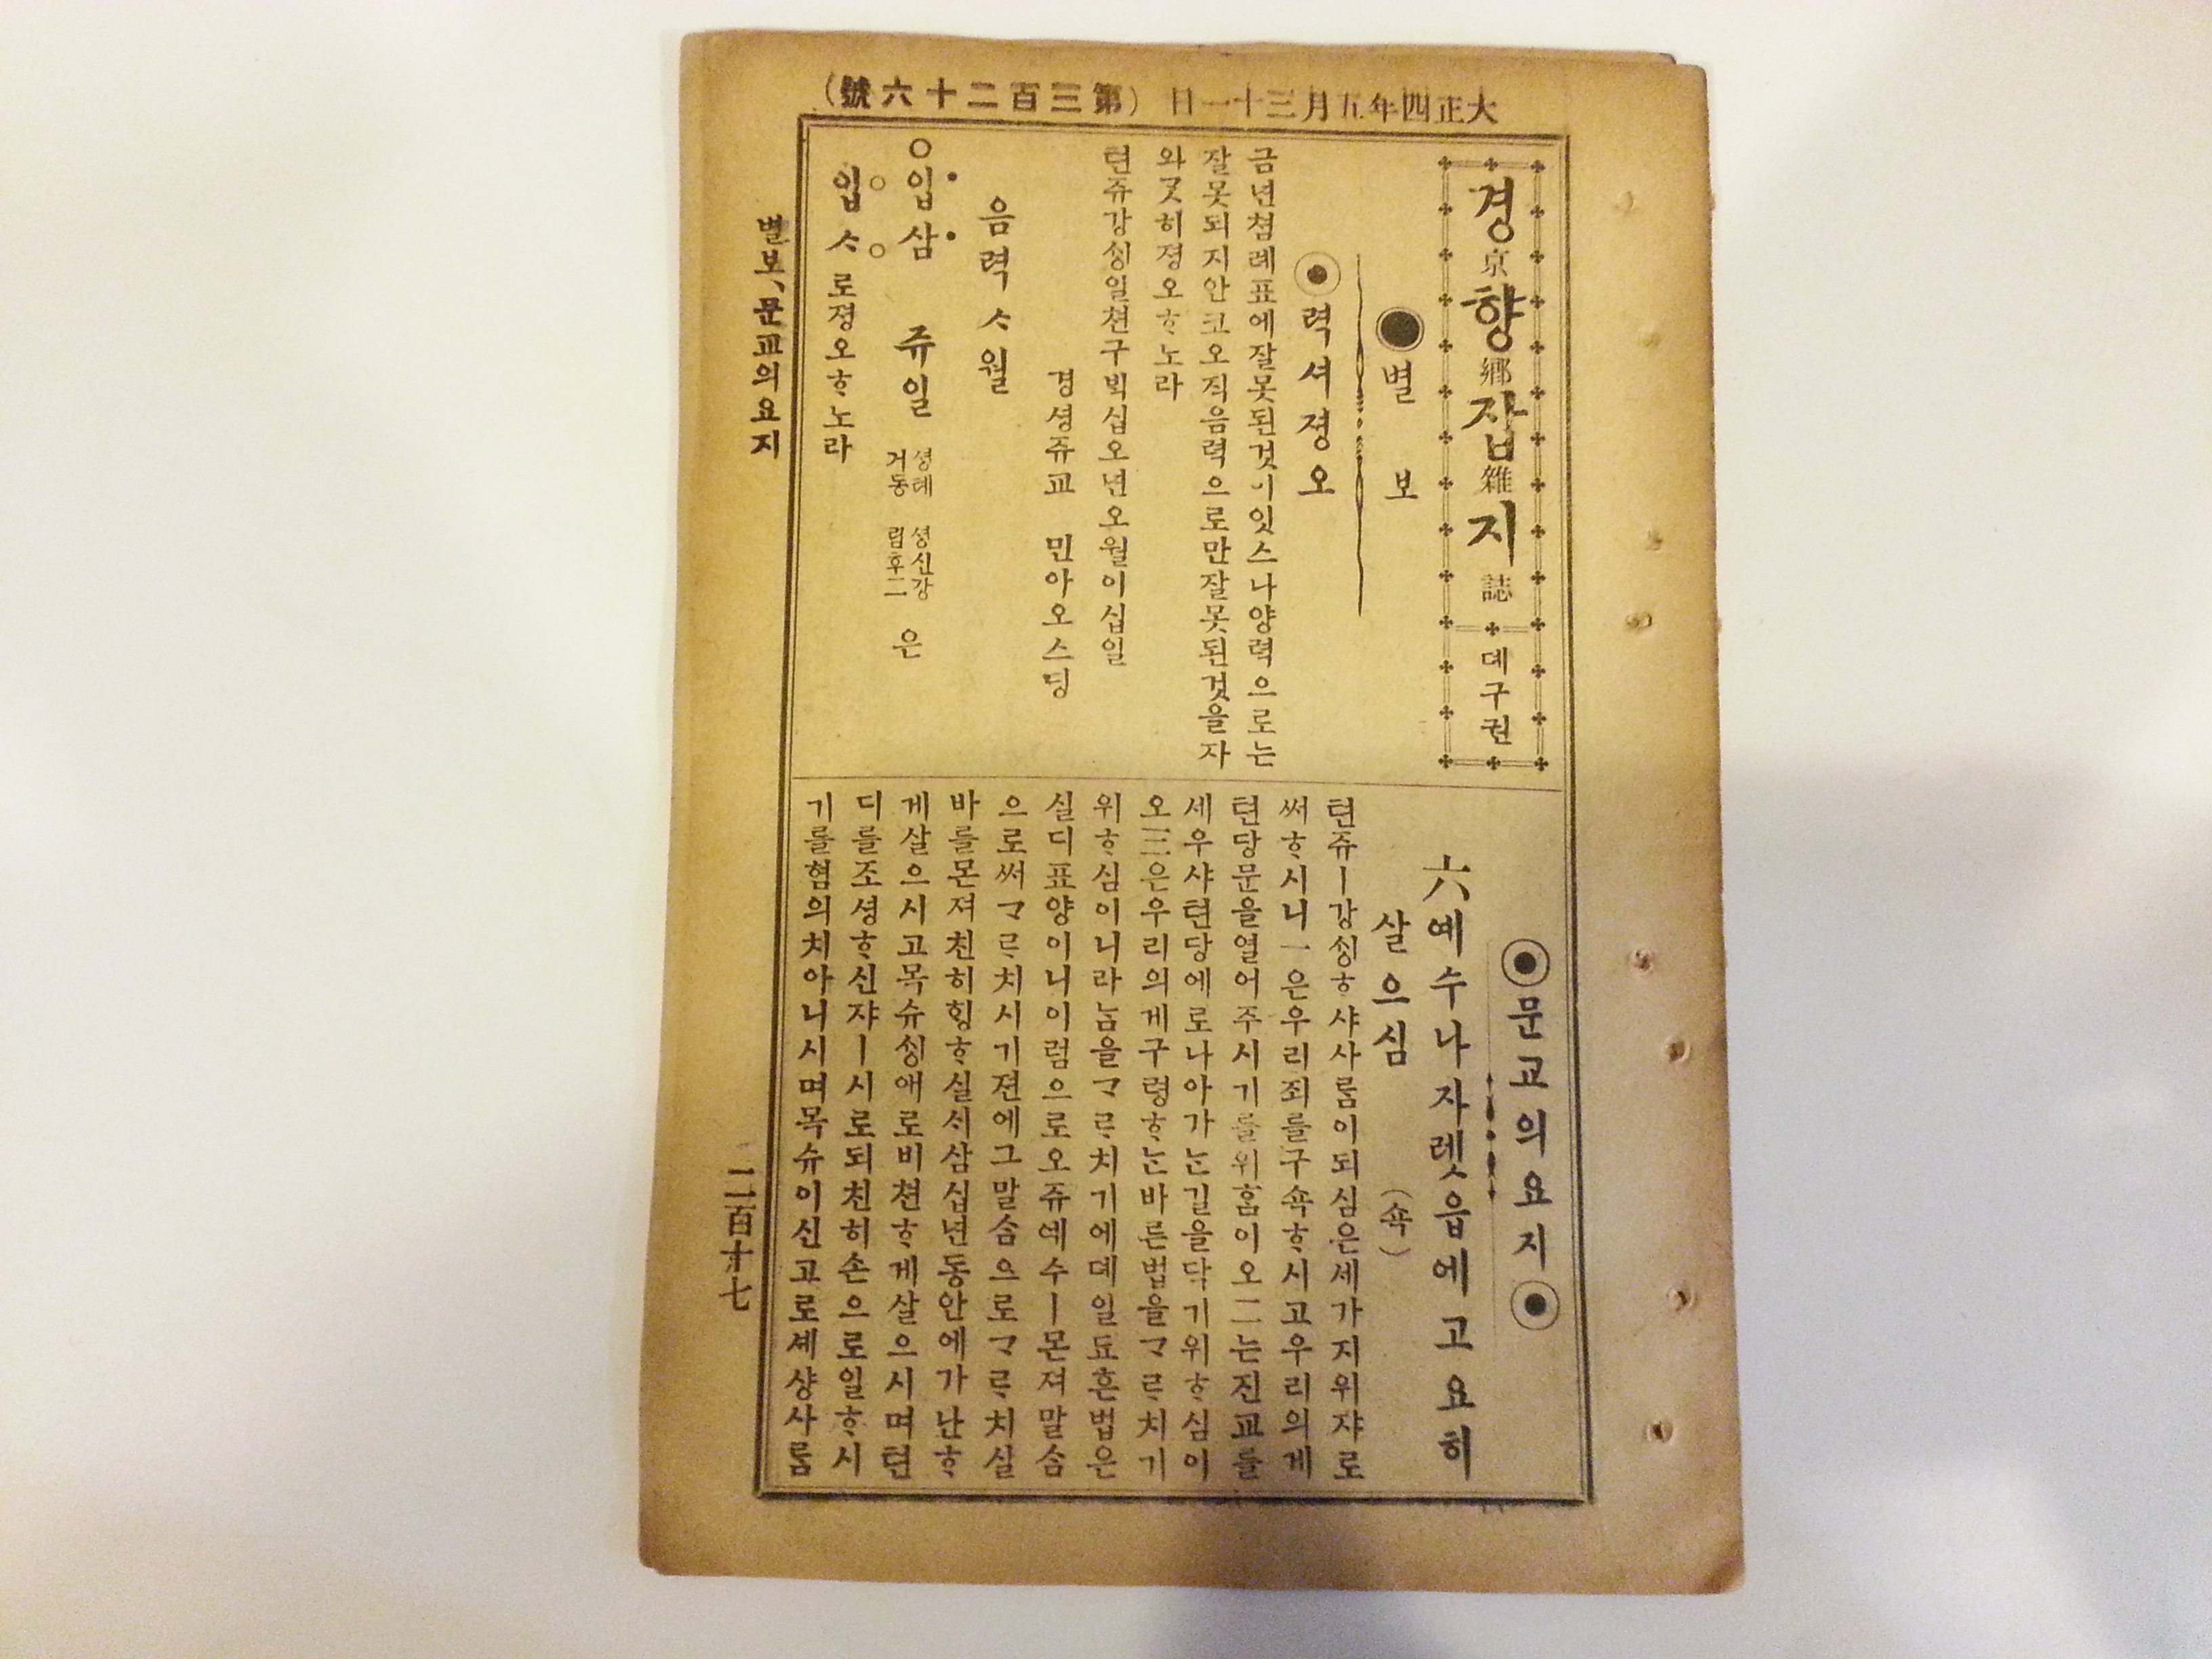 大正四年五月三十一日 (第三百二十六號)
경京향鄕잡雜지誌 뎨구권
●별보
◉력셔졍오
금년쳠례표에잘못된것이잇스나양력으로는
잘못되지안코오직음력으로만잘못된것을자
와ᄀᆞᆺ히졍오ᄒᆞ노라
텬쥬강ᄉᆡᆼ일쳔구ᄇᆡᆨ십오년오월이십일
경셩쥬교 민아오스딩
음력ᄉᆞ월
○입삼 쥬일 셩톄거동 셩신강림후二 은
입ᄉᆞ로졍오ᄒᆞ노라
◉문교의요지◉
六예수나자렛읍에고요히
살으심 (쇽)
텬쥬ㅣ강ᄉᆡᆼᄒᆞ샤사ᄅᆞᆷ이되심은세가지위쟈로
써ᄒᆞ시니一은우리죄를구쇽ᄒᆞ시고우리의게
텬당문을열어주시기를위ᄒᆞᆷ이오二는진교를
세우샤텬당에로나아가ᄂᆞᆫ길을닥기위ᄒᆞ심이
오三은우리의게구령ᄒᆞᄂᆞᆫ바른법을ᄀᆞᄅᆞ치기
위ᄒᆞ심이니라ᄂᆞᆷ을ᄀᆞᄅᆞ치기에뎨일됴흔법은
실디표양이니이럼으로오쥬예수ㅣ몬져말ᄉᆞᆷ
으로써ᄀᆞᄅᆞ치시기젼에그말ᄉᆞᆷ으로ᄀᆞᄅᆞ치실
바를몬져친히ᄒᆡᆼᄒᆞ실ᄉᆡ삼십년동안에가난ᄒᆞ
게살으시고목슈ᄉᆡᆼ애로비쳔ᄒᆞ게살으시며텬
디를조셩ᄒᆞ신쟈ㅣ시로되친히손으로일ᄒᆞ시
기를혐의치아니시며목슈이신고로셰샹사ᄅᆞᆷ
별보、문교의요지
二百十七